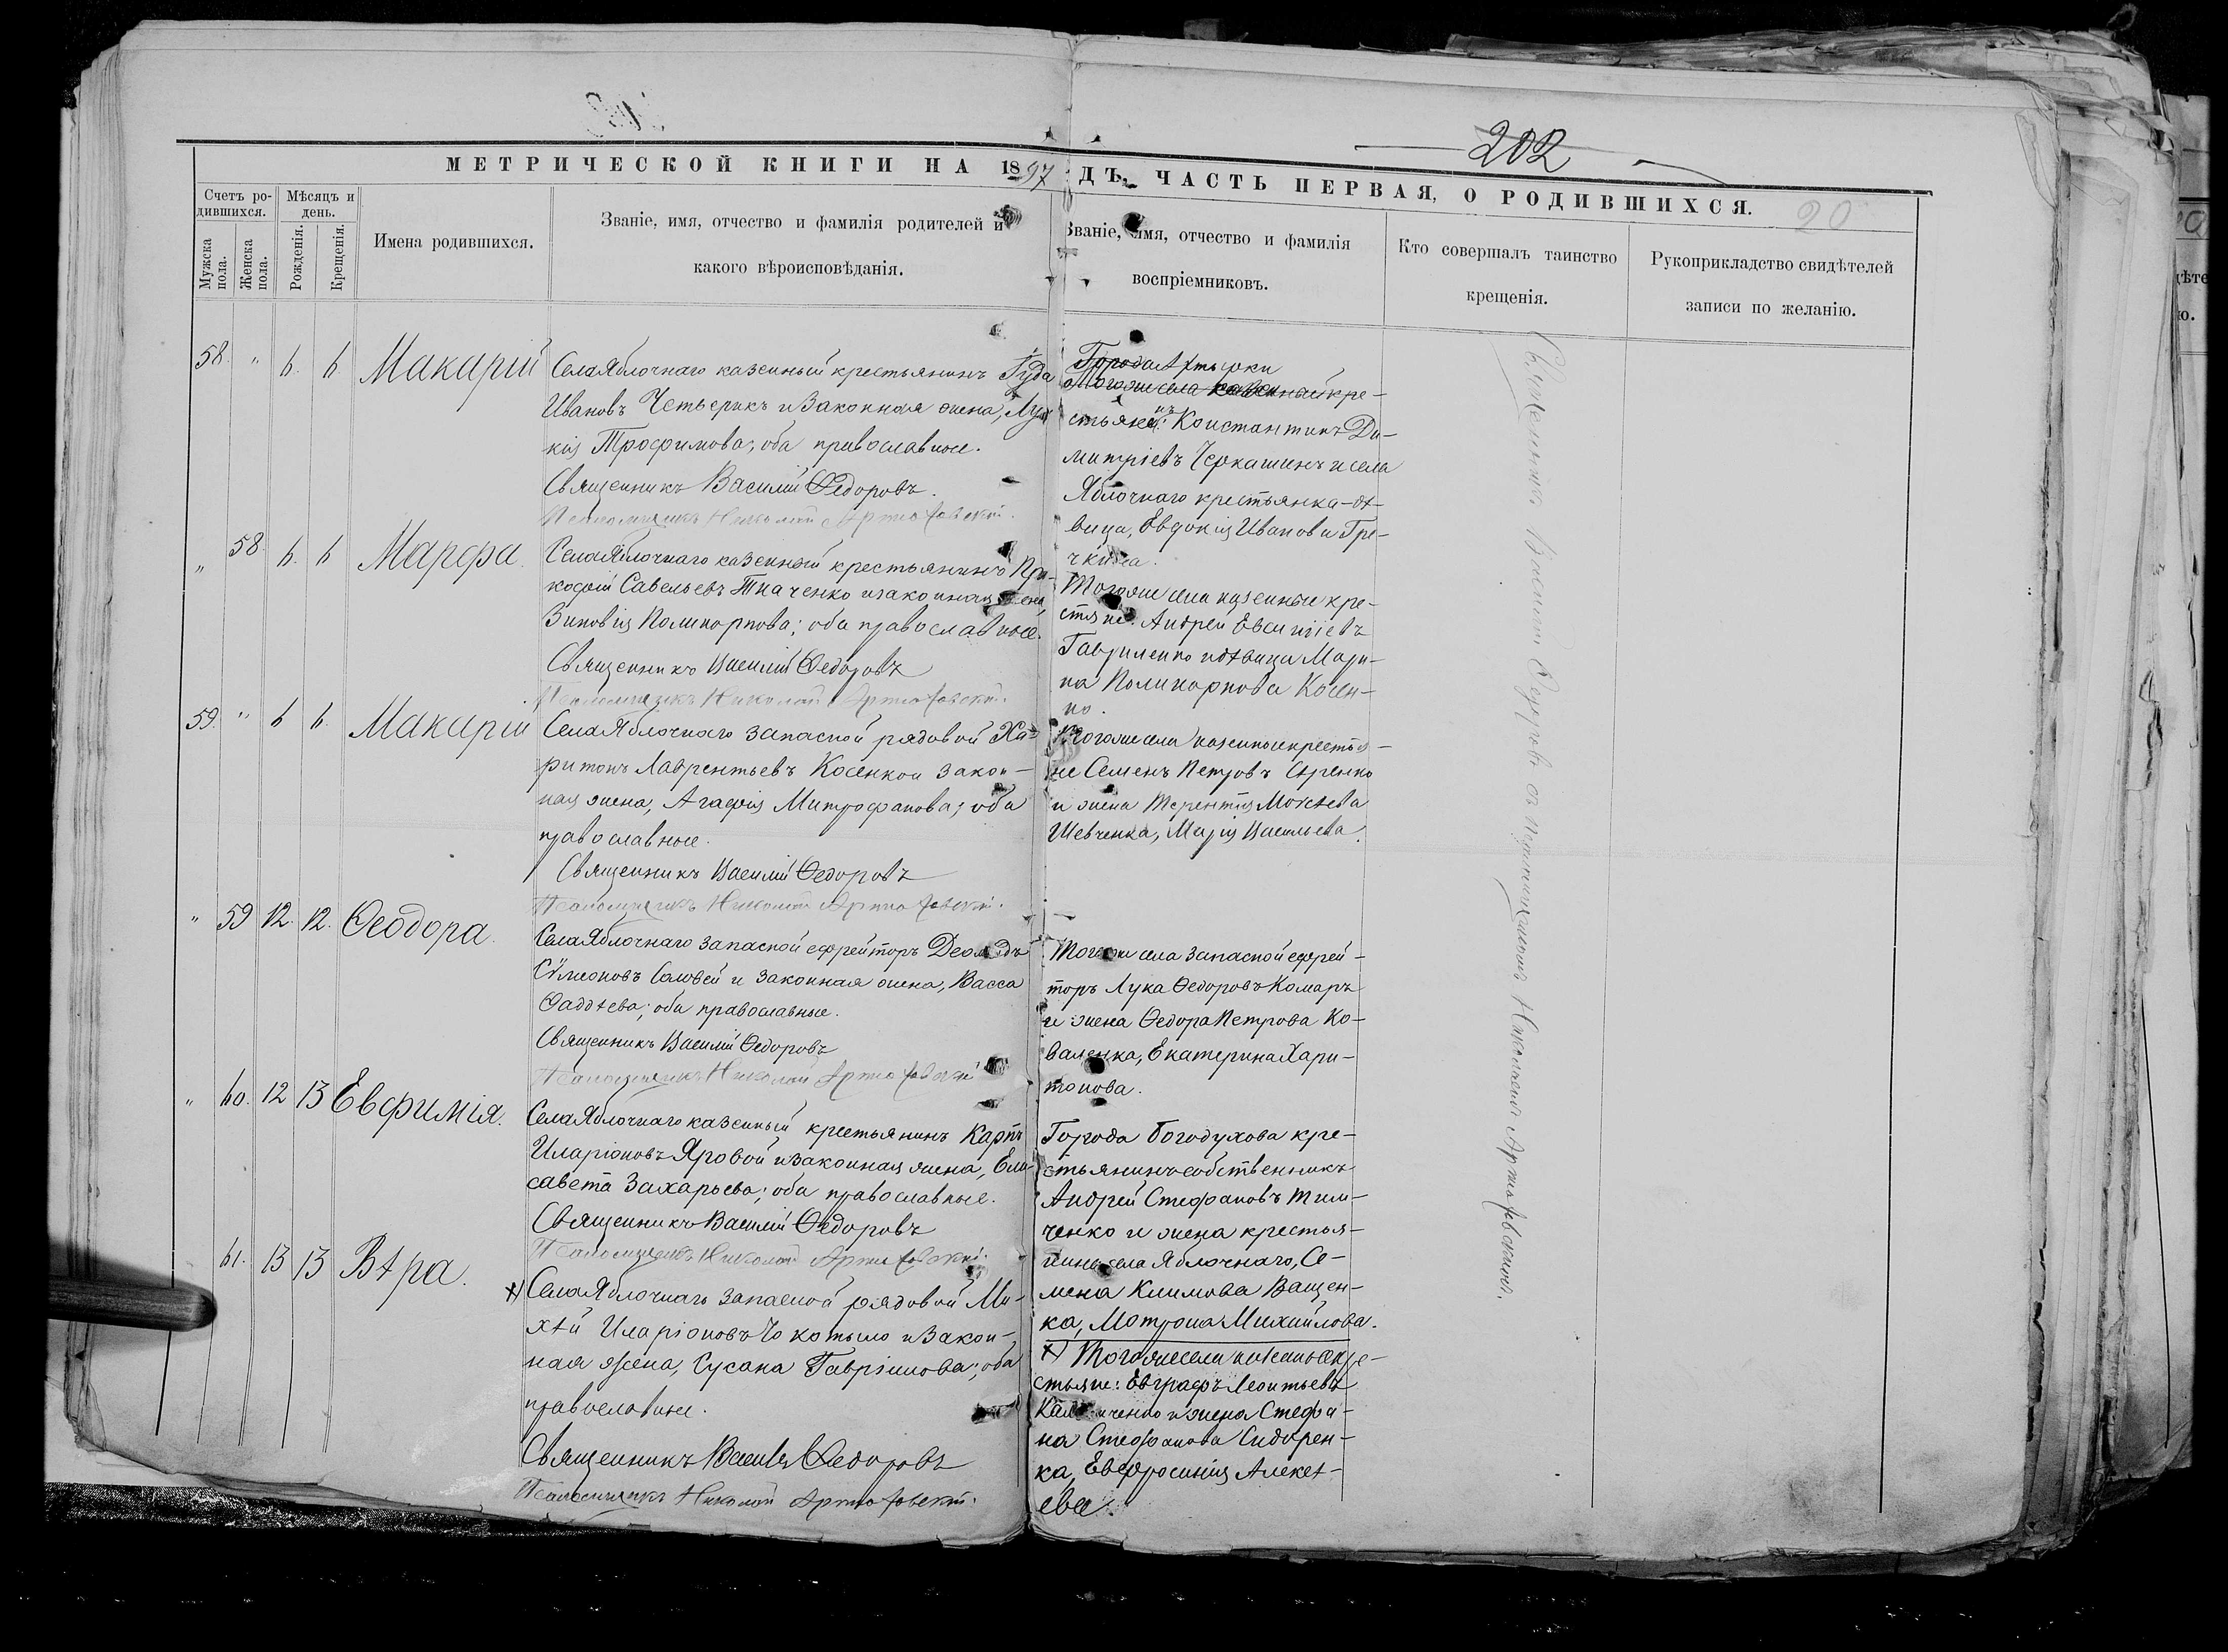 202
МЕТРИЧЕСКОЙ КНИГИ НА 1897
ДЪ, ЧАСТЬ ПЕРВАЯ, О РОДИВШИХСЯ.
20
Счетъ ро-
дившихся.
Мужска пола.
Женска пола.
Мѣсяцъ и
день.
Рожденія.
Крещенія.
Имена родившихся.
Званіе, имя, отчество и фамилія родителей и
какого вѣроисповѣданія.
Званіе, имя, отчество и фамилія
воспріемниковъ.
Кто совершалъ таинство
крещенія.
Рукоприкладство свидѣтелей
записи по желанію.
58. " 6. 6. Макарій
Села Яблочнаго казенный крестьянинъ
Ивановъ Четверикъ и законная жена,
кія Трофимова; оба православные.
Священникъ Василій Ѳедоровъ.
Псаломщикъ Николай Артюховскій.
Города Ахтырки
Того же села казенный кре-
стьянинъ Константинъ Ди-
митріевъ Черкашинъ и села
Яблочнаго крестьянка-дѣ-
вица, Евдокія Иванова Гре-
чкина.
" 58. 6. 6 Марфа.
Села Яблочнаго казенный крестьянинъ Про-
кофій Савельевъ Ткаченко и законная жена,
Зиновія Поликарпова; оба православные.
Священникъ Василій Ѳедоровъ
Псаломщикъ Николай Артюховскій.
Того же села казенные кре-
стьяне: Андрей
Гавриленко и дѣвица Мари-
на Поликарпова Косен-
ко.
59. " 6 6. Макарій
Села Яблочнаго запасной рядовой Ха-
ритонъ Лаврентьевъ Косенко и закон-
ная жена, Агафія Митрофанова; оба
православные.
Священникъ Василій Ѳедоровъ
Псаломщикъ Николай Артюховскій.
Того же села казенные крестья-
не Семенъ Петровъ
и жена Терентія Моисѣева
Шевченка, Марія Васильева.
" 59 12. 12. Ѳеодора.
Села Яблочнаго запасной ефрейторъ
Сѵмеоновъ Соловей и законная жена, Васса
Фаддѣева; оба православные.
Священникъ Василій Ѳедоровъ
Псаломщикъ Николай Артюховскій
Того же села запасной ефрей-
торъ Лука Ѳедоровъ Комаръ
и жена Ѳедора Петрова Ко-
валенка, Екатерина Хари-
тонова.
" 60. 12 13 Евфимія.
Села Яблочнаго казенный крестьянинъ Карпъ
Иларіоновъ Яровой и законная жена, Ели-
савета Захарьева; оба православные.
Священникъ Василій Ѳедоровъ
Псаломщикъ Николай Артюховскій.
Города Богодухова кре-
стьянинъ-собственникъ
Андрей Стефановъ Тим-
ченко и жена крестья-
нина села Яблочнаго, Се-
мена Климова Ващен-
ка, Мотрона Михайлова.
61. 13 13 Вѣра.
х) Села Яблочнаго запасной рядовой Ми-
хѣй Иларіоновъ и закон-
ная жена, Сусана Гавріилова; оба
православные.
Священникъ Василій Ѳедоровъ
Псаломщикъ Николай Артюховскій.
х) Того же села казенные кре-
стьяне: Евграфъ Леонтьевъ
и жена Стефа-
на Стефанова Сидорен-
ка, Евфросинія Алексѣ-
ева.
Священникъ Василій Ѳедоровъ съ псаломщикомъ Николаемъ Артюховскимъ.